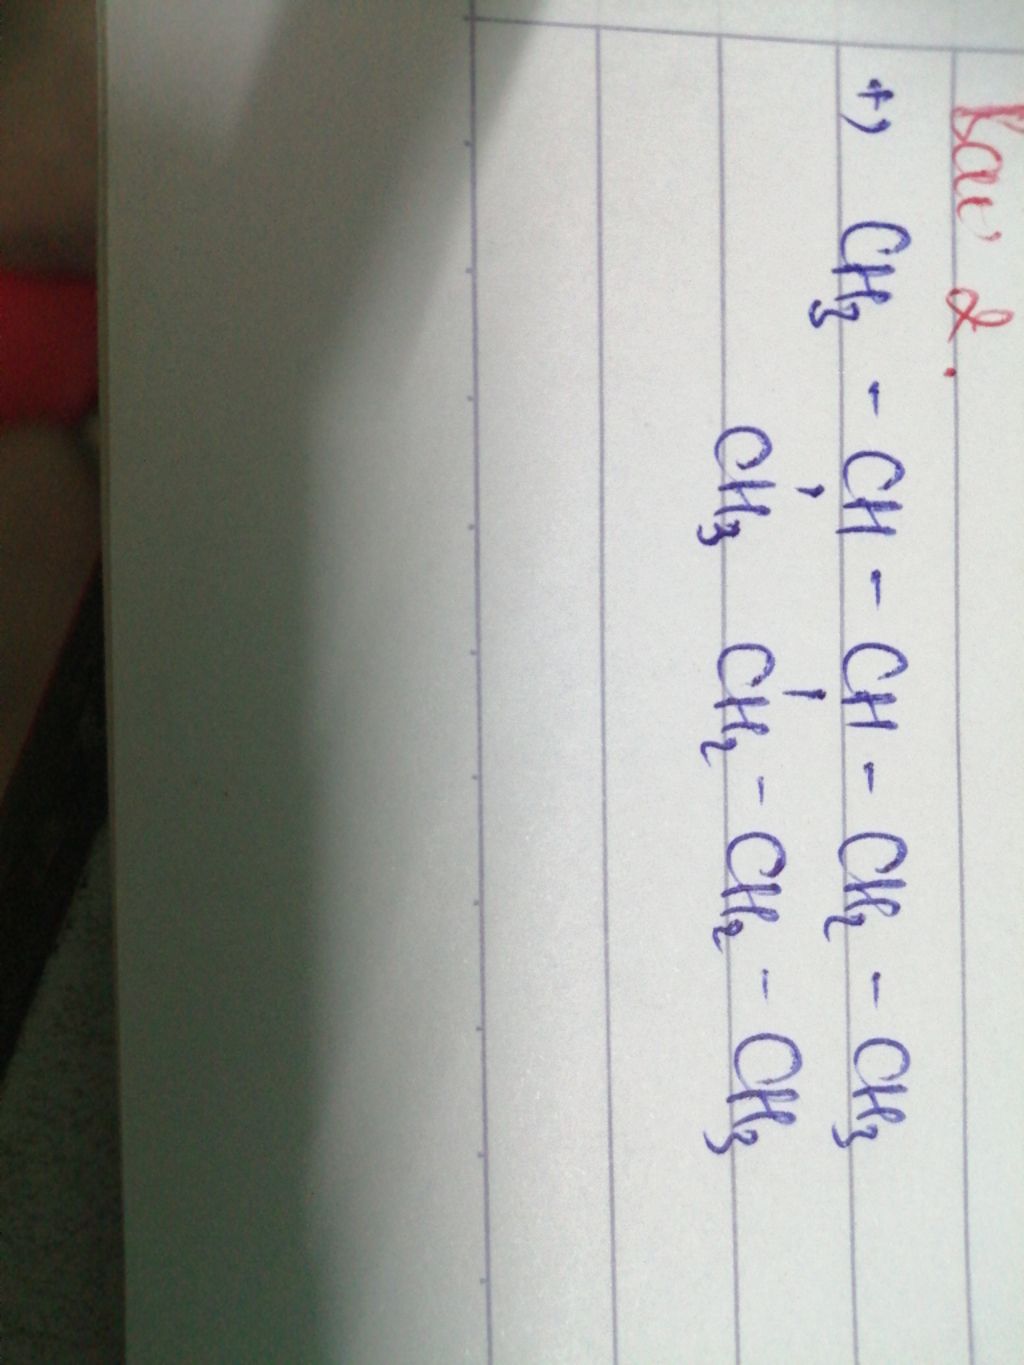 Bài 2.
+, CH₃ - CH - CH - CH₂ - CH₃
CH₃ CH₂ - CH₂ - CH₃